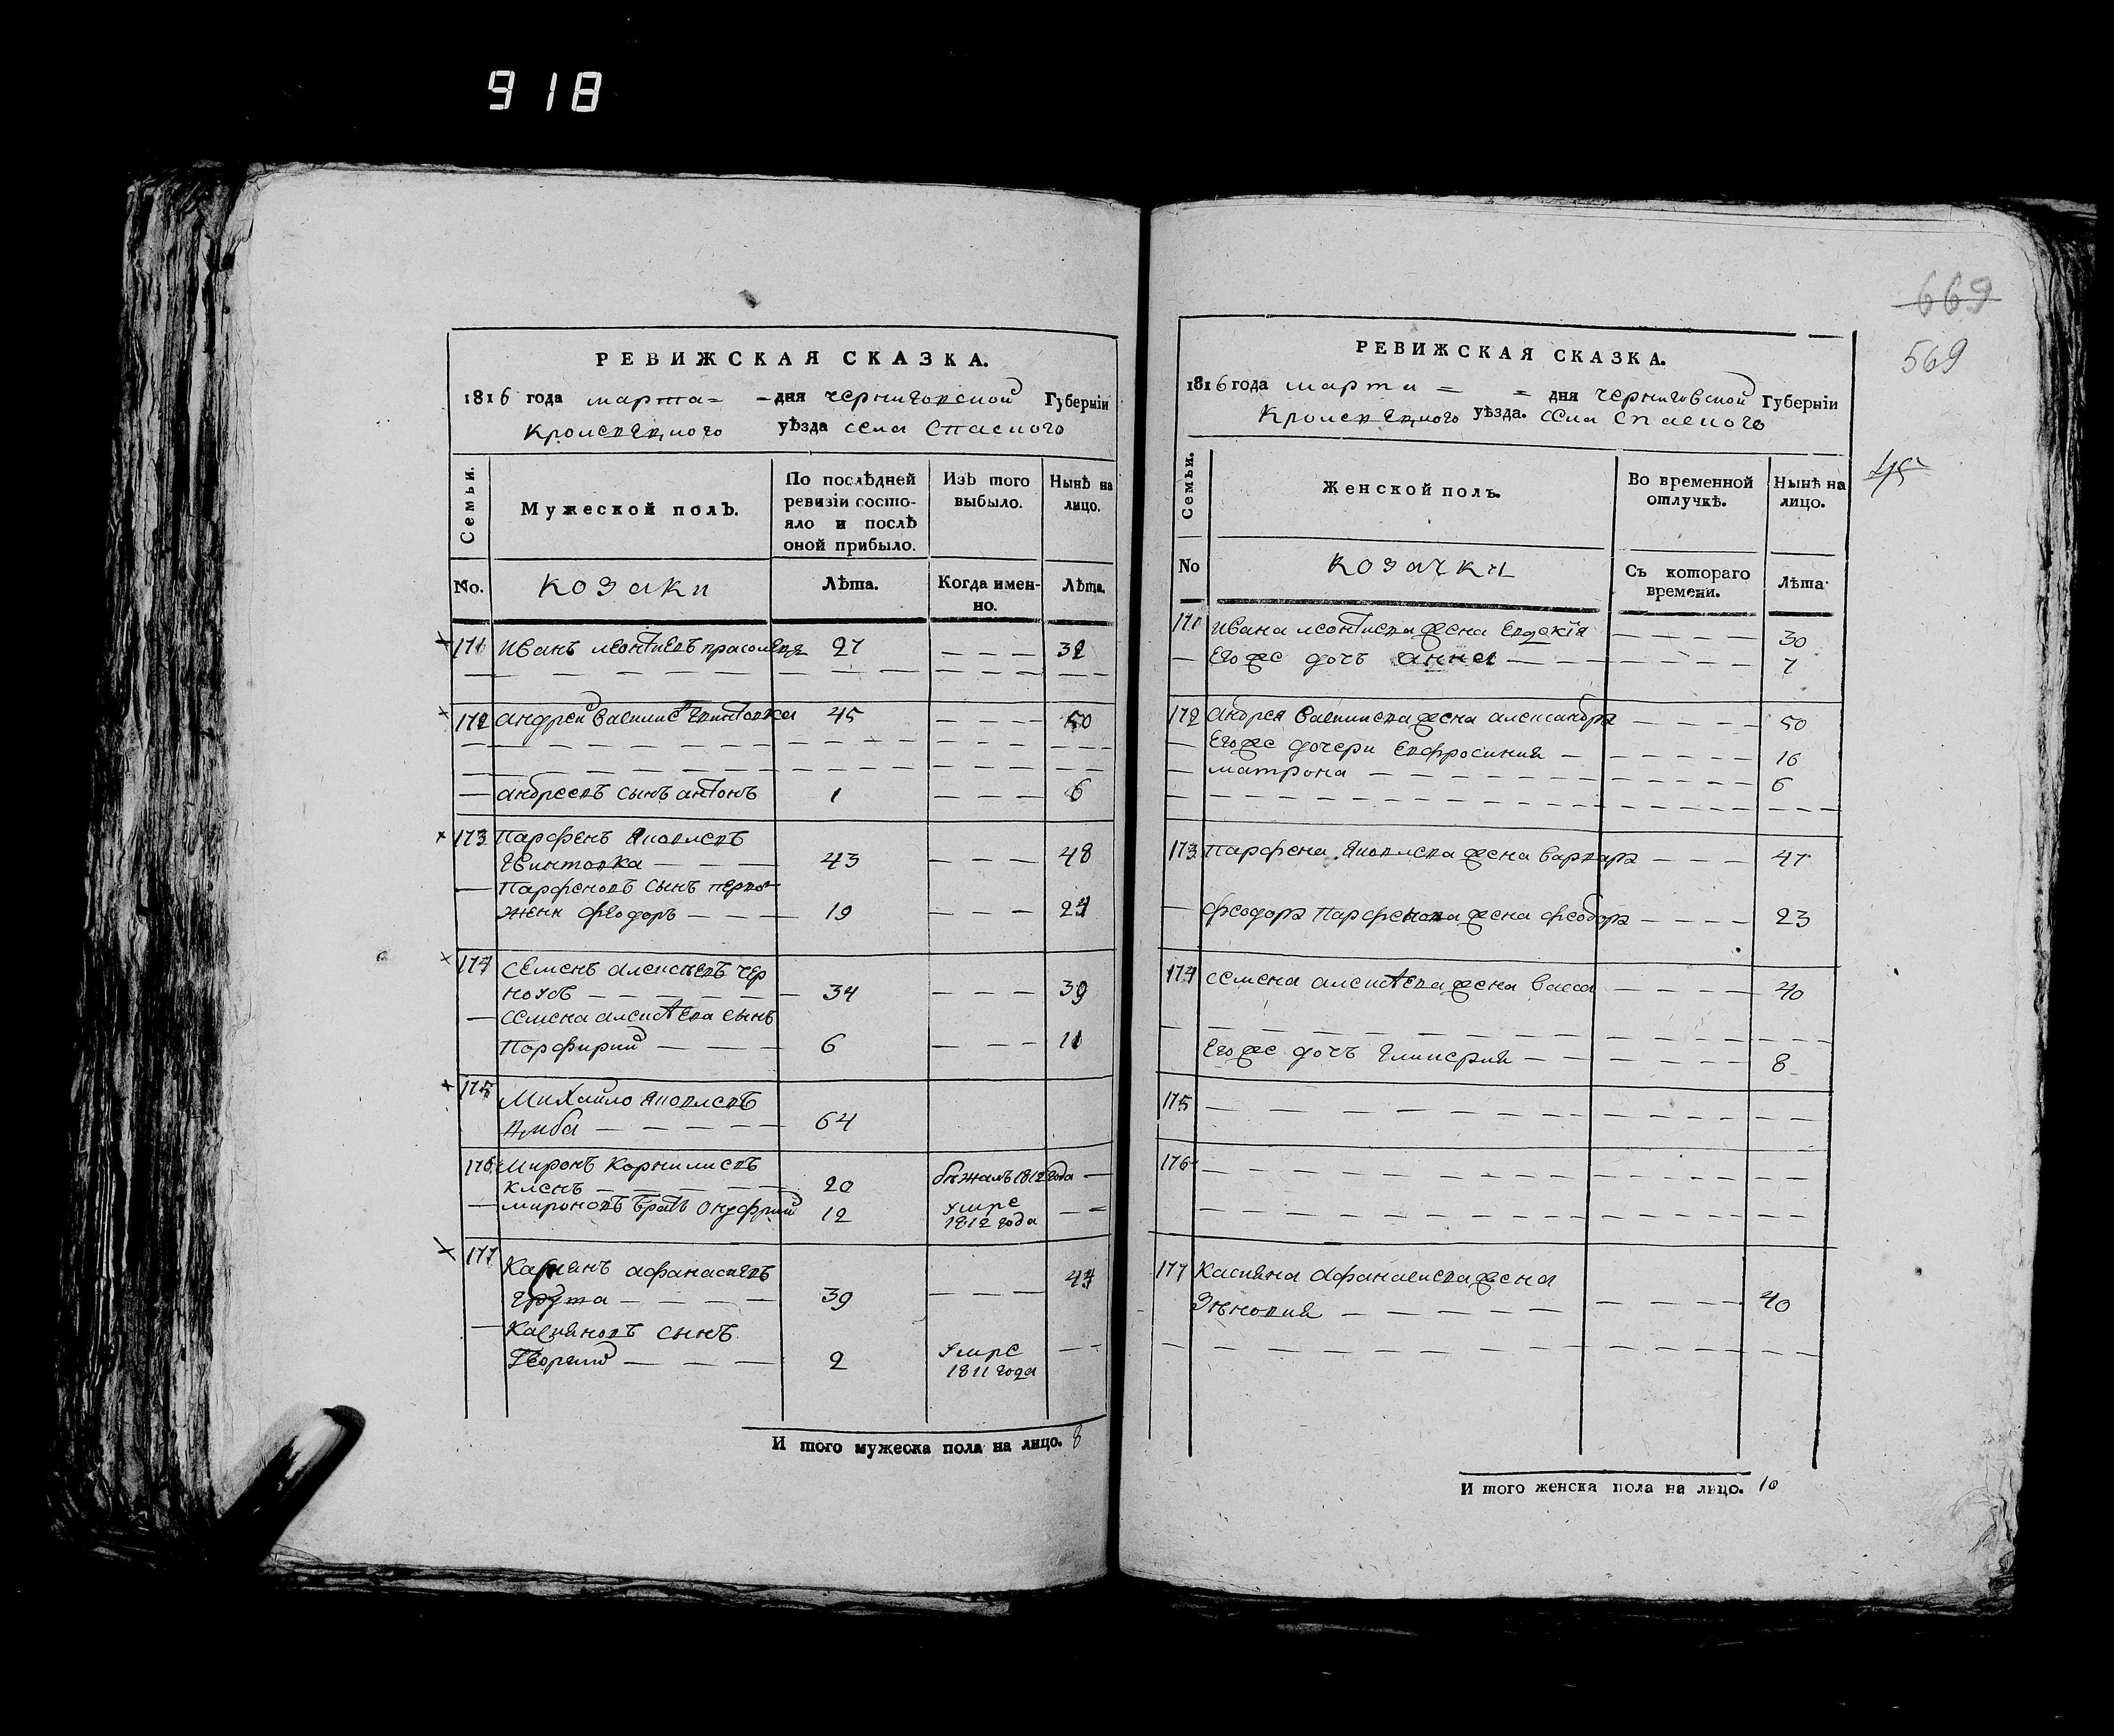 918
РЕВИЖСКАЯ СКАЗКА.
1816 года марта = - дня черниговской Губерніи
Кролевецкого уѣзда села Спаского
Семьи.
Мужеской полъ.
По послѣдней ревизіи состо-
яло и послѣ оной прибыло.
Изъ того выбыло.
Нынѣ на лицо.
No. козаки Лѣта. Когда имен-
но. Лѣта.
171 Иванъ леонтиевъ 27 32
172 андрей василиевъ 45 50
андреевъ сынъ антонъ 1 6
173 Парфенъ Яковлевъ
Квинтовка 43 48
Парфеновъ сынъ первой
жены феодоръ 19 24
174 Семенъ алексѣевъ чер
ноусъ 34 39
Семена алексѣева сынъ
Порфирий 6 11
175 Михайло Яковлевъ
64
176 Миронъ Корнилиевъ
кленъ 20 бѣжалъ 1812 года
мироновъ братъ Онуфрий 12 умре
1812 года
177 Касиянъ афанасиевъ
39 44
Касияновъ сынъ
Георгий 2 умре
1811 года
И того мужеска пола на лицо. 8
669
569
РЕВИЖСКАЯ СКАЗКА.
1816 года марта = = дня черниговской Губерніи
Кролевецкого уѣзда. села Спаского
Семьи.
Женской полъ.
Во временной отлучкѣ.
Нынѣ на лицо.
No козачки Съ котораго
времени. Лѣта
171 Ивана леонтиева жена Евдокія 30
Его же дочъ анна 7
172 андрея Василиева жена александра 50
Его же дочери Евфросиния 16
матрона 6
173 Парфена Яковлева жена варвара 47
феодора Парфенова жена феодора 23
174 Семена алексѣева жена васса 40
Его же дочъ Гликерия 8
175
176
177 Касияна Афанасиева жена
Зѣновия 40
И того женска пола на лицо. 10